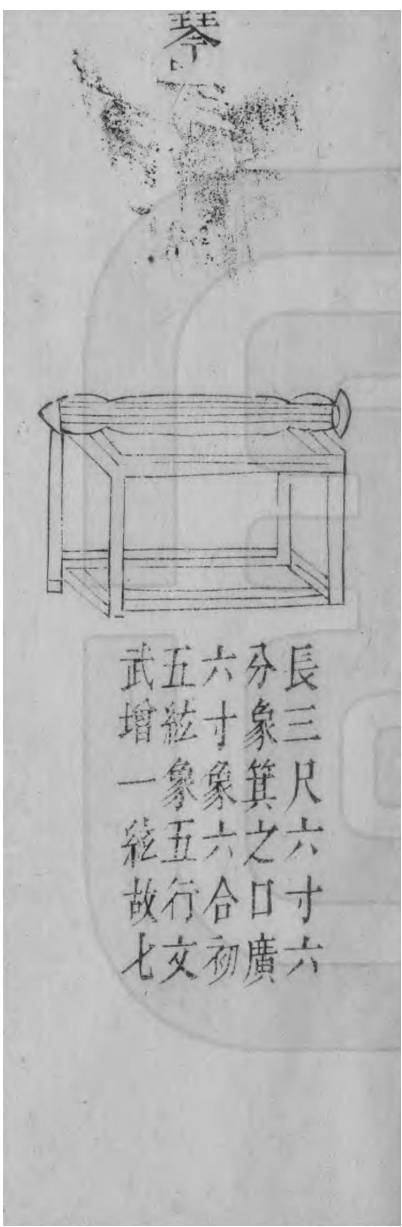 琴
長三尺六寸六
分象箕之口廣
六寸象六合初
五絃象五行文
武增一絃故七